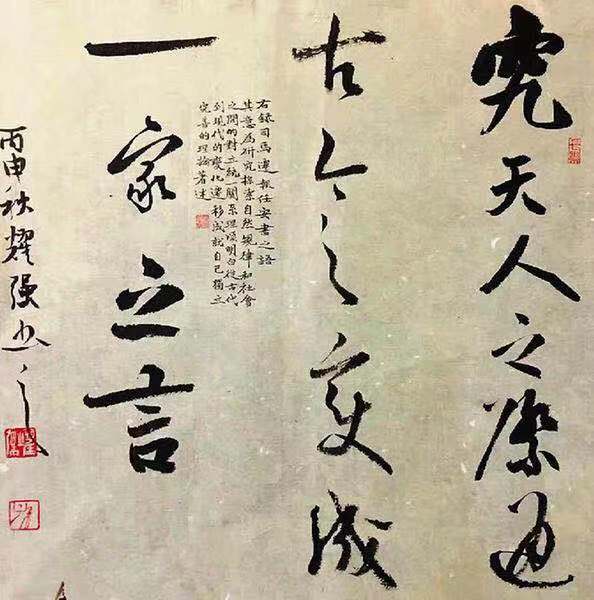 究天人之際通
古今之变成
一家之言
右錄司馬遷报任安書之語
其意爲研究探索自然規律和社會
之間的對立統一關系理順明白從古代
到現代的變化遷移成就自己獨立
完善的理論著述
丙申秋耀强书之